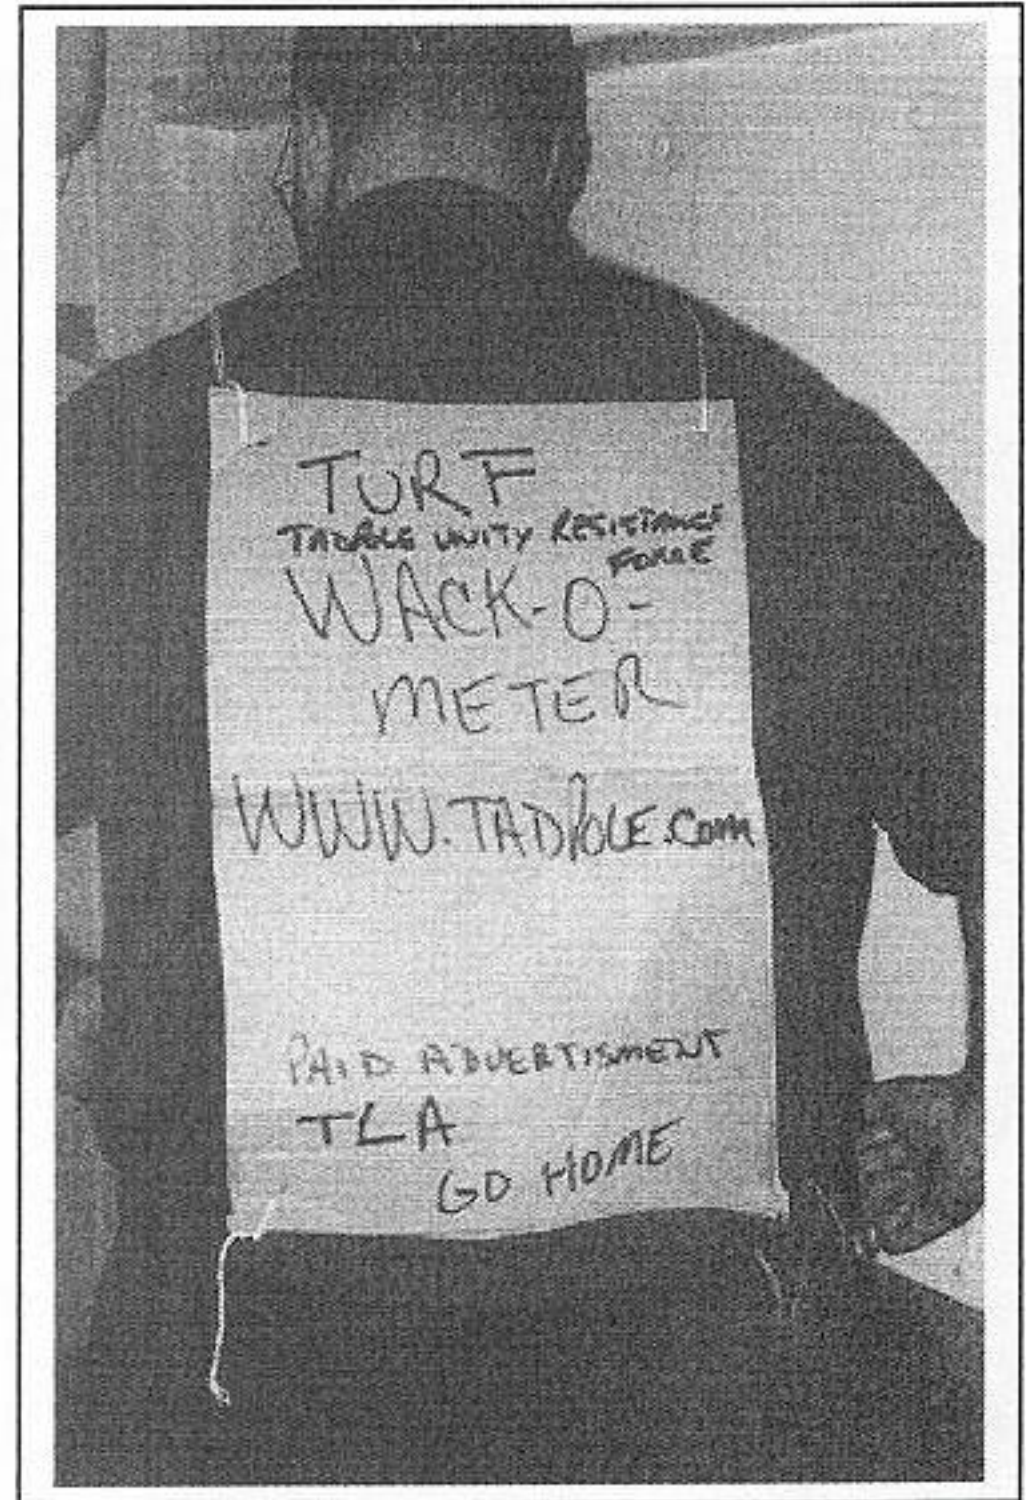 TURF
TADPOLE UNITY RESISTANCE
FORCE
WACK-O-
METER
WWW.TADPOLE.COM
PAID ADVERTISMENT
TLA
GO HOME